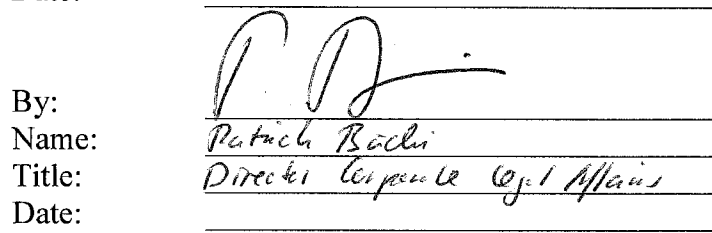 By:
Name: Patrick Bächi
Title: Director Corporate Legal Affairs
Date: